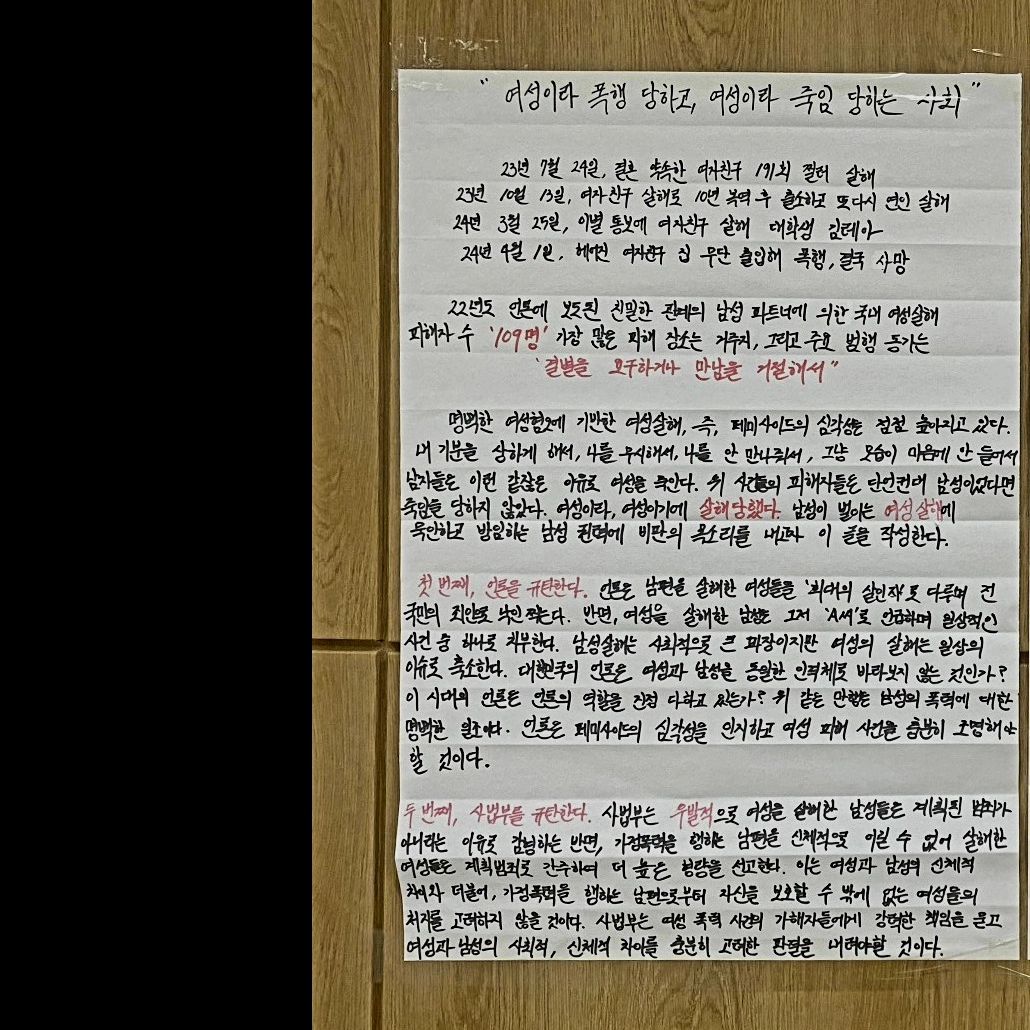 " 여성이라 폭행 당하고, 여성이라 죽임 당하는 사회 "
23년 7월 24일, 결혼 약속한 여자친구 191회 찔러 살해
23년 10월 13일, 여자친구 살해로 10년 복역 후 출소하고 또다시 연인 살해
24년 3월 25일, 이별 통보에 여자친구 살해 대학생 김레아
24년 4월 1일, 헤어진 여자친구 집 무단 출입해 폭행, 결국 사망
22년도 언론에 보도된 친밀한 관계의 남성 파트너에 의한 국내 여성살해
피해자 수 '109명' 가장 많은 피해 장소는 거주지, 그리고 주요 범행 동기는
"결별을 요구하거나 만남을 거절해서"
명백한 여성혐오에 기반한 여성살해, 즉, 페미사이드의 심각성은 점점 높아지고 있다.
내 기분을 상하게 해서, 나를 무시해서, 나를 안 만나줘서, 그냥 모습이 마음에 안 들어서
남자들은 이런 같잖은 이유로 여성을 죽인다. 위 사건들의 피해자들은 단언컨대 남성이었다면
죽임을 당하지 않았다. 여성이라, 여성이기에 살해당했다. 남성이 벌이는 여성살해에
묵인하고 방임하는 남성 권력에 비판의 목소리를 내고자 이 글을 작성한다.
첫 번째, 언론을 규탄한다. 언론은 남편을 살해한 여성들을 '희대의 살인자'로 다루며 전
국민의 죄인으로 낙인 찍는다. 반면, 여성을 살해한 남성은 그저 'A씨'로 언급하며 일상적인
사건 중 하나로 치부한다. 남성살해는 사회적으로 큰 파장이지만 여성의 살해는 일상의
이슈로 축소한다. 대한민국의 언론은 여성과 남성을 동일한 인격체로 바라보지 않는 것인가?
이 시대의 언론은 언론의 역할을 진정 다하고 있는가? 위 같은 만행은 남성의 폭력에 대한
명백한 일조이다. 언론은 페미사이드의 심각성을 인지하고 여성 피해 사건을 충분히 조명해야
할 것이다.
두 번째, 사법부를 규탄한다. 사법부는 우발적으로 여성을 살해한 남성들은 계획된 범죄가
아니라는 이유로 감형하는 반면, 가정폭력을 행하는 남편을 신체적으로 이길 수 없어 살해한
여성들은 계획범죄로 간주하여 더 높은 형량을 선고한다. 이는 여성과 남성의 신체적
차이와 더불어, 가정폭력을 행하는 남편으로부터 자신을 보호할 수 밖에 없는 여성들의
처지를 고려하지 않을 것이다. 사법부는 여성 폭력 사건의 가해자들에게 강력한 책임을 묻고
여성과 남성의 사회적, 신체적 차이를 충분히 고려한 판결을 내려야할 것이다.